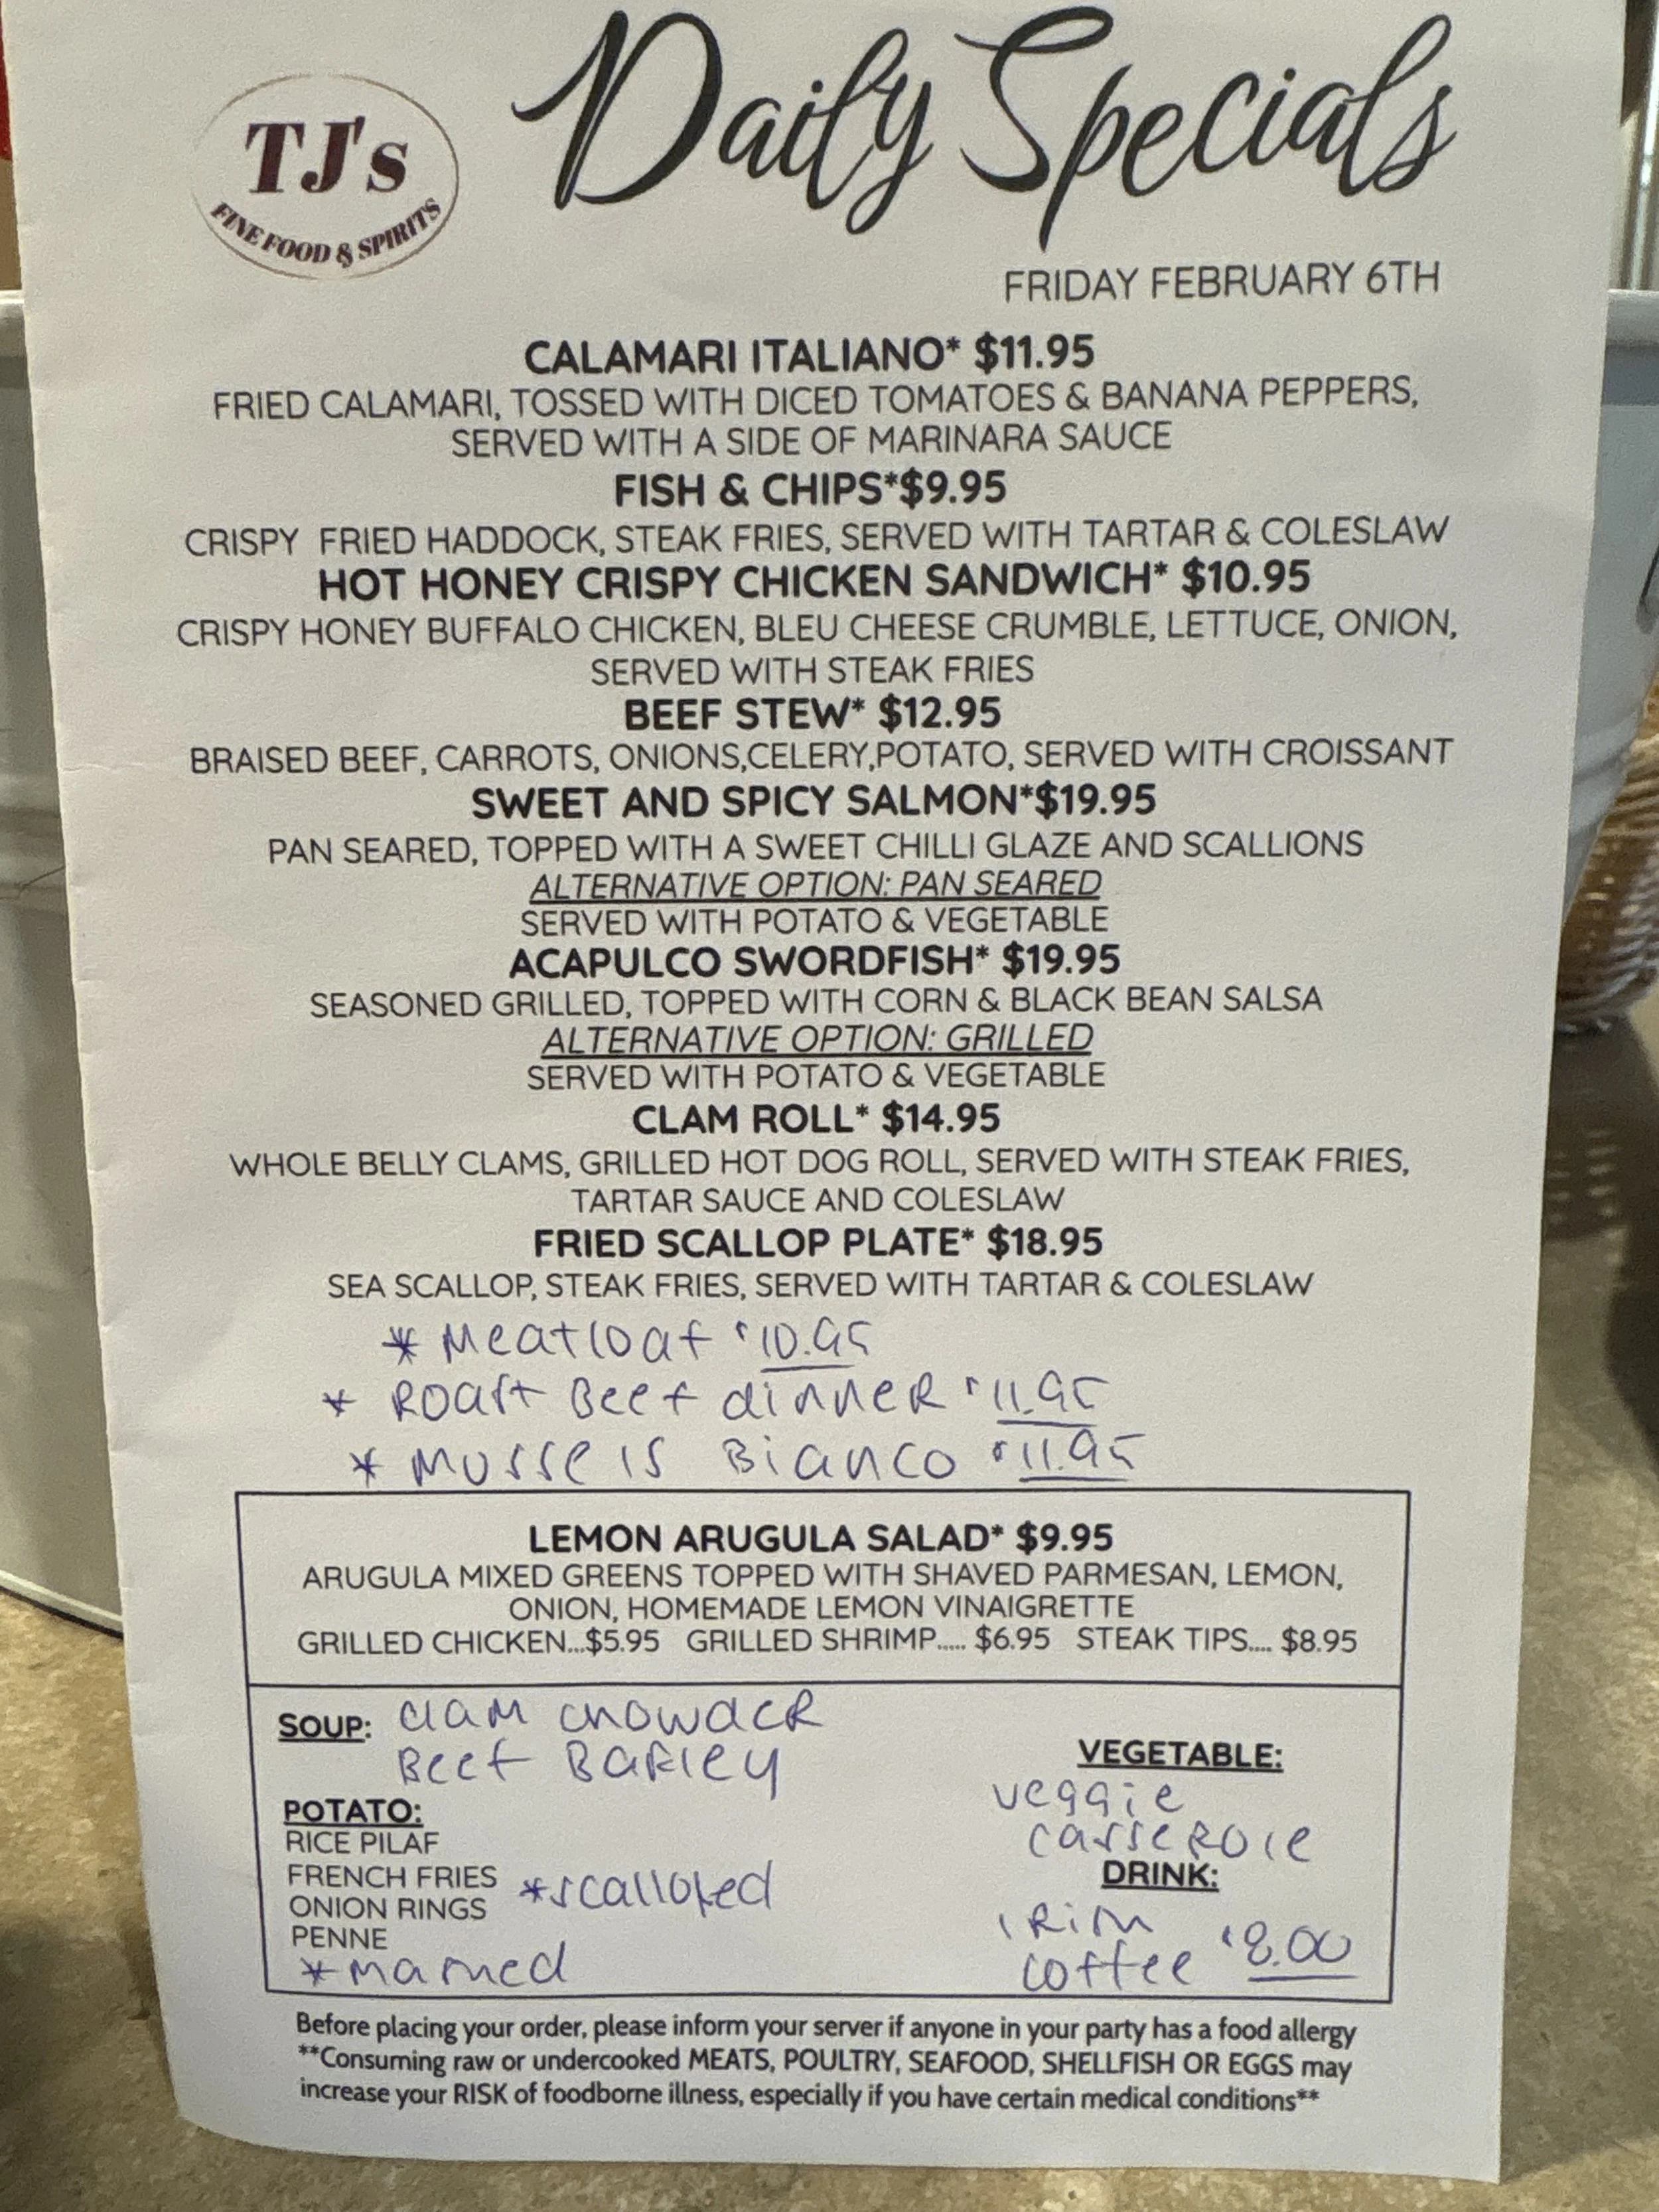 TJ's
FINE FOOD & SPIRITS
Daily Specials
FRIDAY FEBRUARY 6TH
CALAMARI ITALIANO* $11.95
FRIED CALAMARI, TOSSED WITH DICED TOMATOES & BANANA PEPPERS,
SERVED WITH A SIDE OF MARINARA SAUCE
FISH & CHIPS*$9.95
CRISPY FRIED HADDOCK, STEAK FRIES, SERVED WITH TARTAR & COLESLAW
HOT HONEY CRISPY CHICKEN SANDWICH* $10.95
CRISPY HONEY BUFFALO CHICKEN, BLEU CHEESE CRUMBLE, LETTUCE, ONION,
SERVED WITH STEAK FRIES
BEEF STEW* $12.95
BRAISED BEEF, CARROTS, ONIONS,CELERY,POTATO, SERVED WITH CROISSANT
SWEET AND SPICY SALMON*$19.95
PAN SEARED, TOPPED WITH A SWEET CHILLI GLAZE AND SCALLIONS
ALTERNATIVE OPTION: PAN SEARED
SERVED WITH POTATO & VEGETABLE
ACAPULCO SWORDFISH* $19.95
SEASONED GRILLED, TOPPED WITH CORN & BLACK BEAN SALSA
ALTERNATIVE OPTION: GRILLED
SERVED WITH POTATO & VEGETABLE
CLAM ROLL* $14.95
WHOLE BELLY CLAMS, GRILLED HOT DOG ROLL, SERVED WITH STEAK FRIES,
TARTAR SAUCE AND COLESLAW
FRIED SCALLOP PLATE* $18.95
SEA SCALLOP, STEAK FRIES, SERVED WITH TARTAR & COLESLAW
* Meatloaf $10.95
* Roast Beef dinner $11.95
* Mussels Bianco $11.95
LEMON ARUGULA SALAD* $9.95
ARUGULA MIXED GREENS TOPPED WITH SHAVED PARMESAN, LEMON,
ONION, HOMEMADE LEMON VINAIGRETTE
GRILLED CHICKEN...$5.95 GRILLED SHRIMP..... $6.95 STEAK TIPS.... $8.95
SOUP: Clam Chowder
Beef Barley
POTATO:
RICE PILAF
FRENCH FRIES
ONION RINGS
PENNE
*scalloped
*Mashed
VEGETABLE:
veggie
casserole
DRINK:
Irish
coffee $8.00
Before placing your order, please inform your server if anyone in your party has a food allergy
**Consuming raw or undercooked MEATS, POULTRY, SEAFOOD, SHELLFISH OR EGGS may
increase your RISK of foodborne illness, especially if you have certain medical conditions**